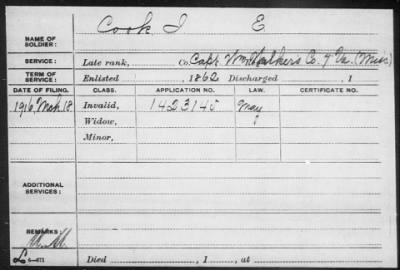 NAME OF SOLDIER: Cook I E
SERVICE: Late rank, Co. Capt. Wm Walkers Co. 7 Va. (Misc)
TERM OF SERVICE: Enlisted , 1862 Discharged , 1
DATE OF FILING. CLASS. APPLICATION NO. LAW. CERTIFICATE NO.
1916, Mch 18 Invalid, 1423145 May
Widow,
Minor,
ADDITIONAL SERVICES:
REMARKS:
Died , 1 , at